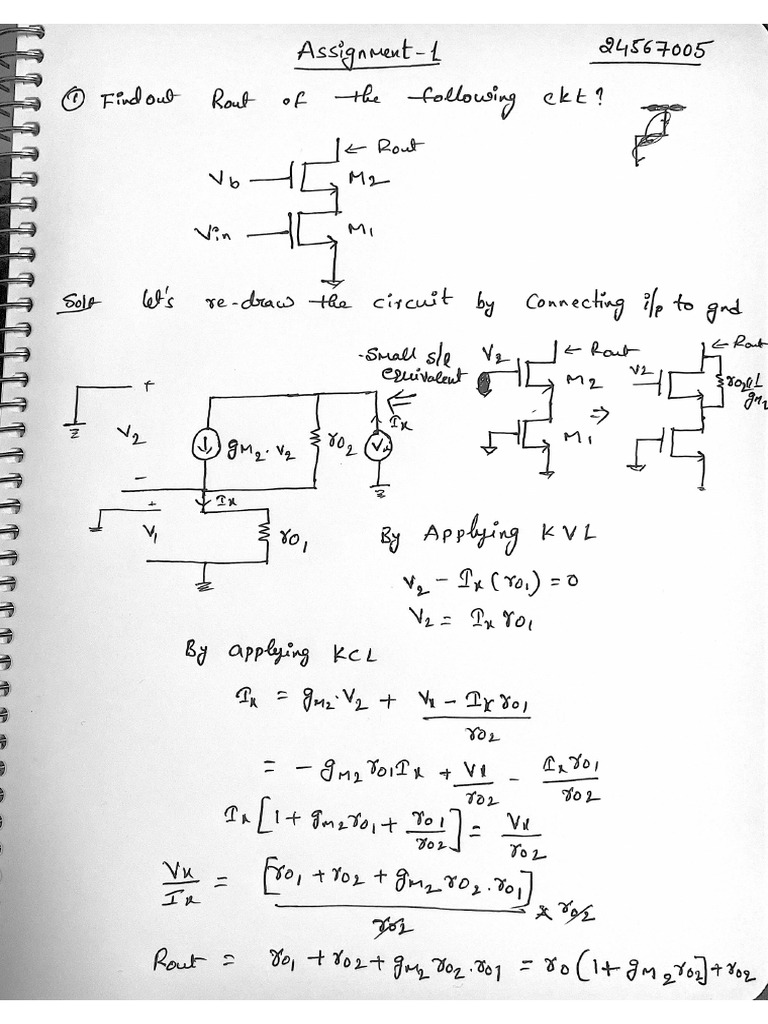 Assignment-1
24567005
① Find out Rout of the following ckt?
← Rout
Vb
M2
Vin
M1
Soln let's re-draw the circuit by Connecting i/p to gnd
-Small s/g equivalent
V2
← Rout
M2
M1
⇒
V2
← Rout
+
V2
-
gM2·V2
ro2
Ix
Vx
Ix
+
V1
ro1
By Applying KVL
V2 - Ix(ro1) = 0
V2 = Ix ro1
By applying KCL
Ix = gM2·V2 + Vx - Ix ro1 / ro2
= - gM2 ro1 Ix + Vx/ro2 - Ix ro1/ro2
Ix [1 + gM2 ro1 + ro1/ro2] = Vx/ro2
Vx/Ix = [ro1 + ro2 + gM2 ro2·ro1] / ro2 × ro2
Rout = ro1 + ro2 + gM2 ro2·ro1 = ro(1 + gM2 ro2] + ro2